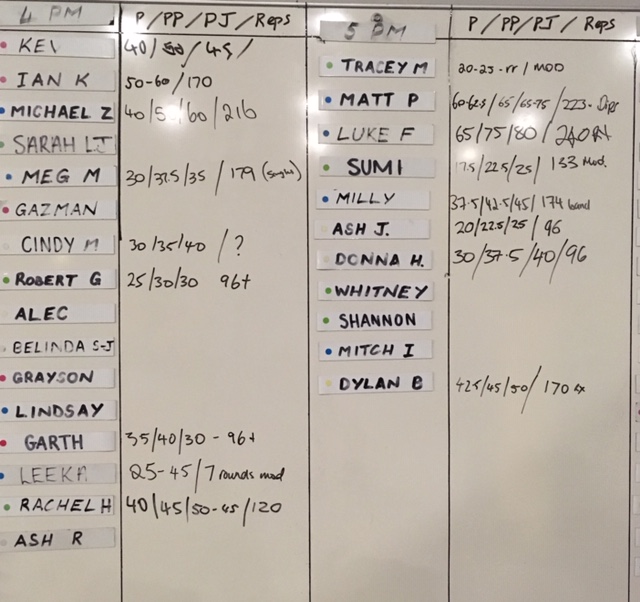 4 PM P/PP/PJ/Reps
KEV 40/50/45/
IAN K 50-60/170
MICHAEL Z 40/5 /60/216
SARAH LJ
MEG M 30/37.5/35/179
GAZMAN
CINDY M 30/35/40/?
ROBERT G 25/30/30 96+
ALEC
BELINDA S-J
GRAYSON
LINDSAY
GARTH 35/40/30 - 96+
LEEKA 25-45/7 rounds mod
RACHEL H 40/45/50-45/120
ASH R
5 PM P/PP/PJ/Reps
TRACEY M 20-25-rr/MOD
MATT P 60-62.5/65/65-75/223- Dips
LUKE F 65/75/80/
SUMI 17.5/22.5/25/153 Mod.
MILLY 37.5/42.5/45/174 band
ASH J. 20/22.5/25/96
DONNA H. 30/37.5/40/96
WHITNEY
SHANNON
MITCH I
DYLAN B 42.5/45/50/170